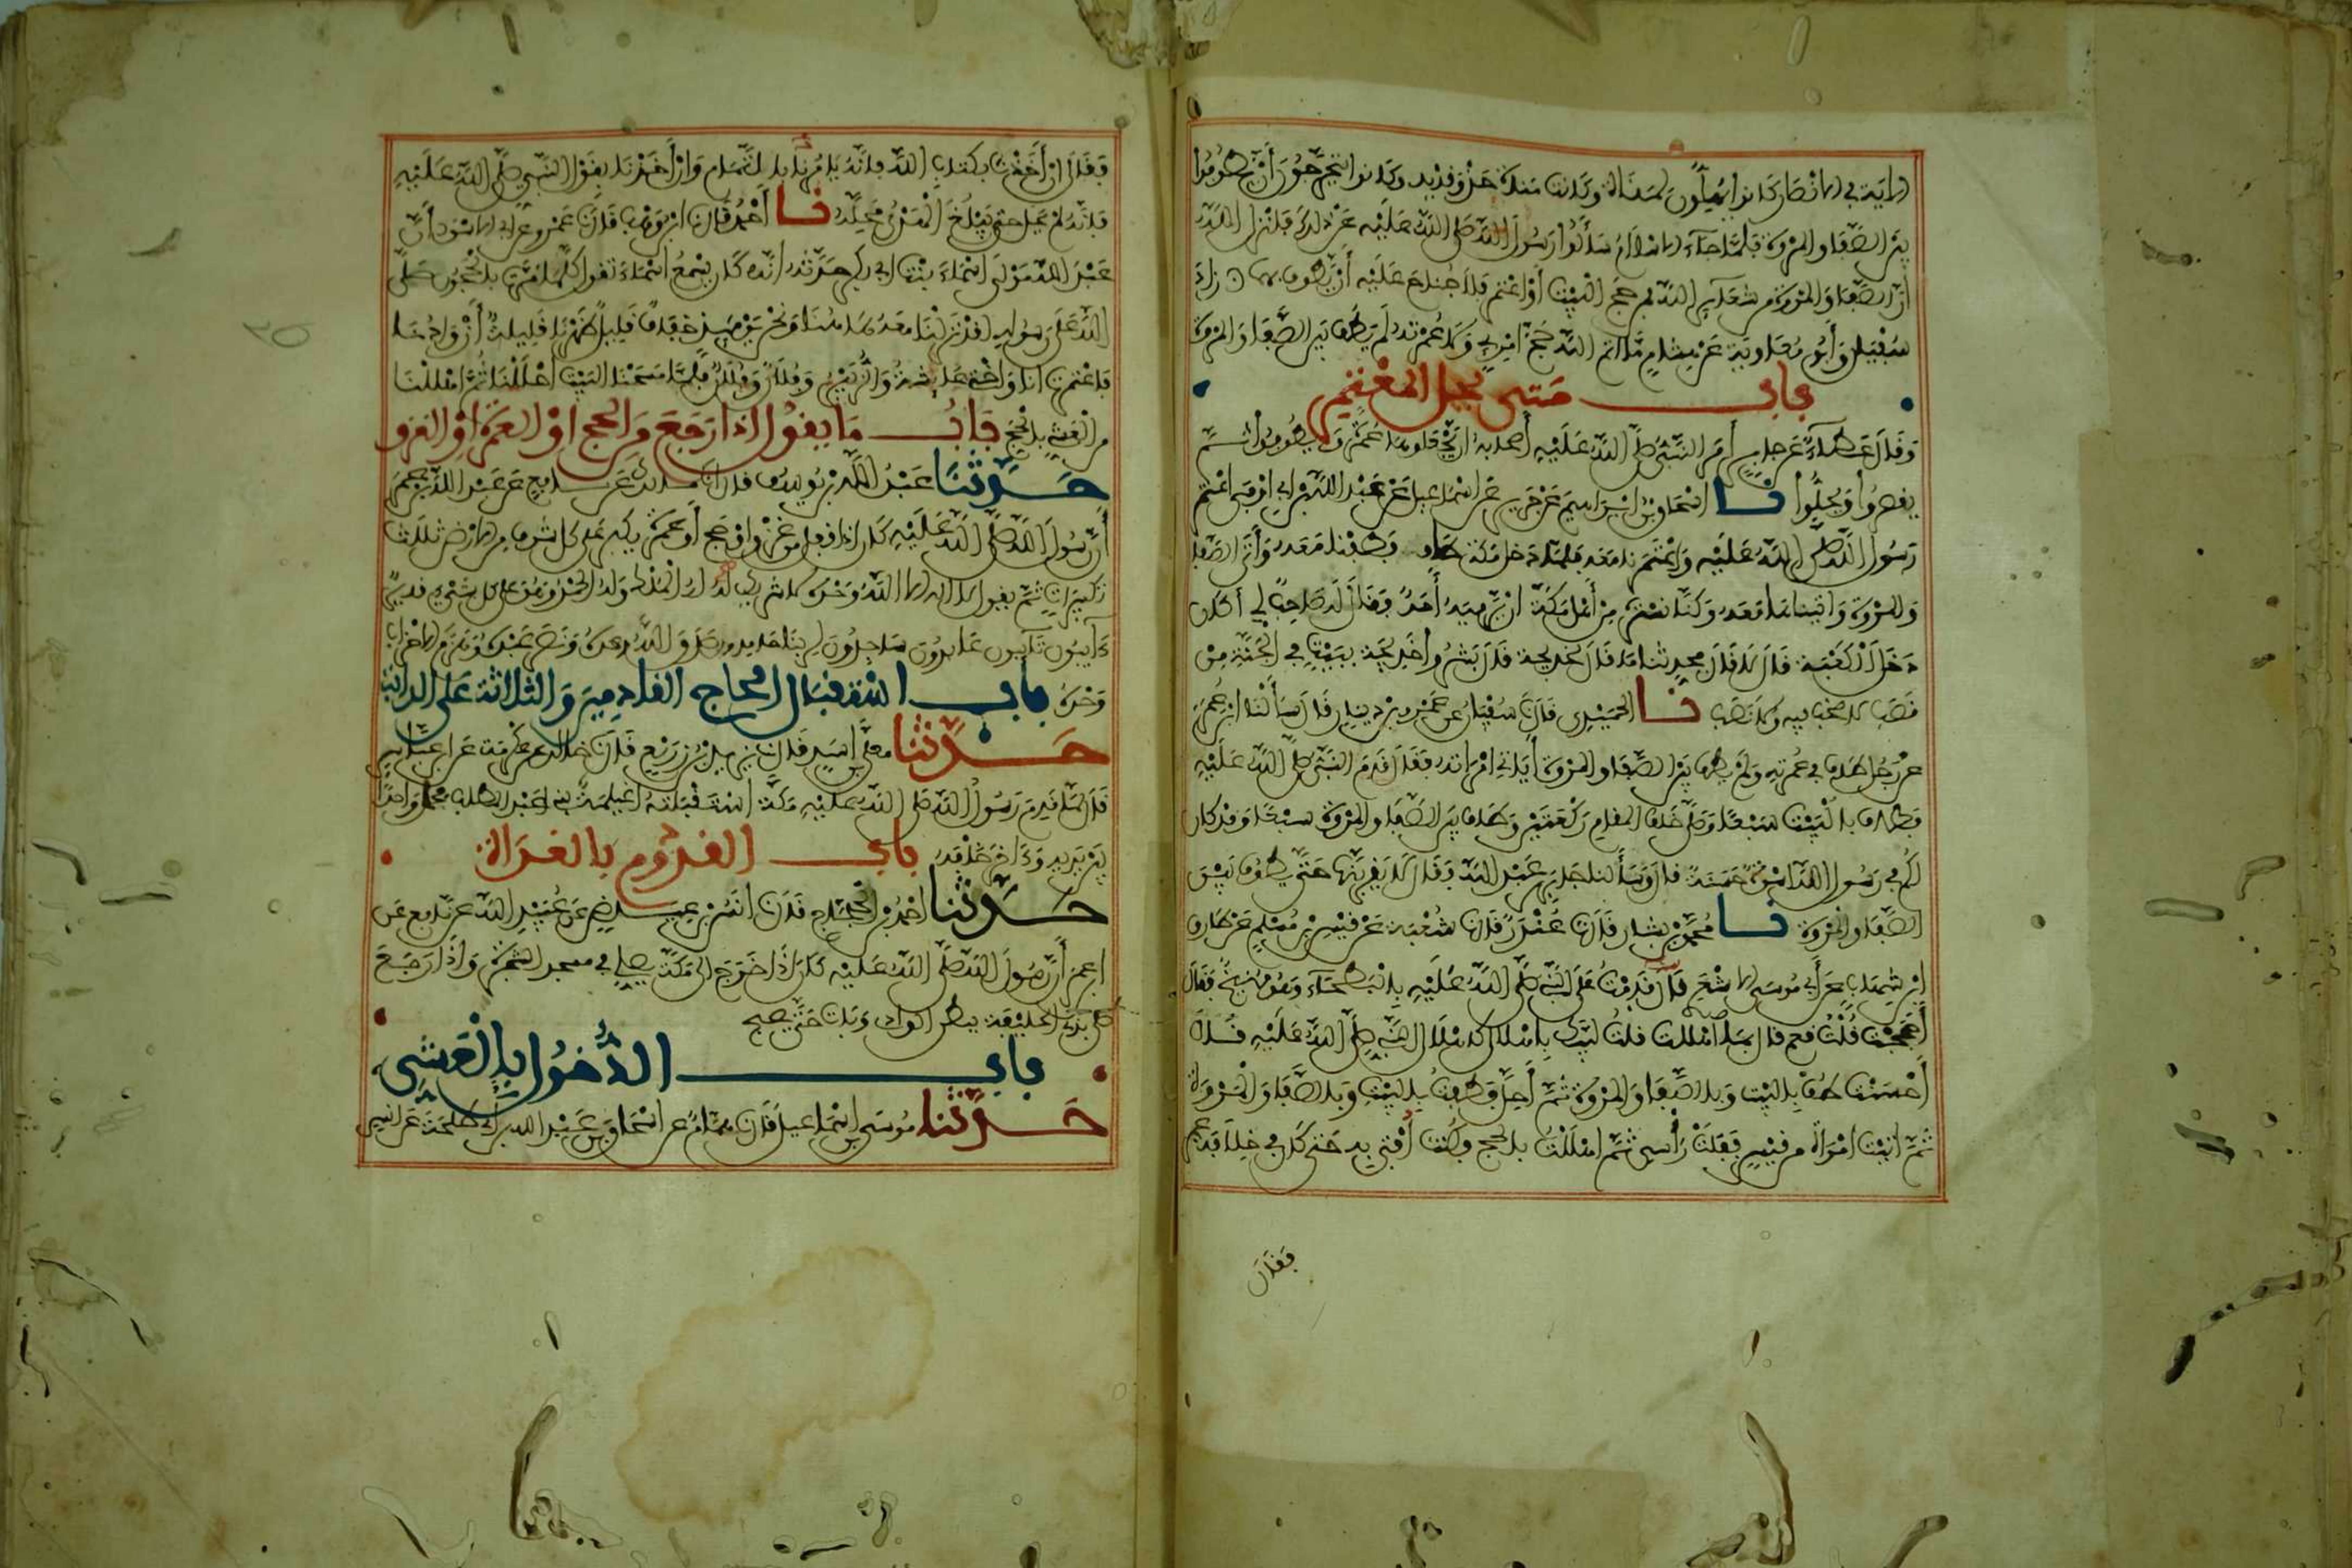 الاية في الانصار كانوا يهلون لمناة وكانت مناة حذو قديد وكانوا يتحرجون أن يطوفوا
بين الصفا والمروة فلما جاء الاسلام سألوا رسول الله صلى الله عليه عن ذلك فانزل الله
ان الصفا والمروة من شعاير الله فمن حج البيت أو اعتمر فلا جناح عليه أن يطوف بهما زاد
سفين وأبو معاوية عن هشام ما اتم الله حج امرئ ولا عمرته لم يطف بين الصفا والمروة
باب متى يحل المعتمر
وقال عطاء عن جابر أمر النبي صلى الله عليه أصحابه ان يجعلوها عمرة ويطوفوا ثم
يقصروا ويحلوا نا اسحاق بن ابراهيم عن جرير عن اسماعيل عن عبد الله بن ابي اوفى اعتمر
رسول الله صلى الله عليه واعتمرنا معه فلما دخل مكة طاف وطفنا معه وأتى الصفا
والمروة واتيناها معه وكنا نستره من أهل مكة ان يرميه أحد فقال له صاحب لي أكان
دخل الكعبة قال لا قال فحدثنا ما قال لخديجة قال بشروا خديجة ببيت في الجنة من
قصب لا صخب فيه ولا نصب نا الحميدي قال نا سفيان عن عمرو بن دينار قال سألنا ابن عمر
عن رجل طاف في عمرته ولم يطف بين الصفا والمروة أياتي امراته فقال قدم النبي صلى الله عليه
فطاف بالبيت سبعا وصلى خلف المقام ركعتين وطاف بين الصفا والمروة سبعا وقد كان
لكم في رسول الله اسوة حسنة قال وسألنا جابر بن عبد الله فقال لا يقربنها حتى يطوف بين
الصفا والمروة نا محمد بن بشار قال نا غندر قال نا شعبة عن قيس بن مسلم عن طارق
ابن شهاب عن أبي موسى الاشعري قال قدمت على النبي صلى الله عليه بالبطحاء وهو منيخ فقال
أحججت قلت نعم قال بما اهللت قلت لبيك باهلال كاهلال النبي صلى الله عليه قال
أحسنت طف بالبيت وبالصفا والمروة ثم أحل فطفت بالبيت وبالصفا والمروة
ثم اتيت امراة من قيس ففلت رأسي ثم اهللت بالحج فكنت أفتي به حتى كان في خلافة عمر
فقال
فقال ان أخذنا بكتاب الله فانه يامرنا بالتمام وان أخذنا بقول النبي صلى الله عليه
فانه لم يحل حتى يبلغ الهدي محله نا أحمد قال نا ابن وهب قال نا عمرو عن ابي الاسود أن
عبد الله مولى اسماء بنت ابي بكر حدثه انه كان يسمع اسماء تقول كلما مرت بالحجون صلى
الله على رسوله لقد نزلنا معه هاهنا ونحن يوميذ خفاف قليل ظهرنا قليلة أزوادنا
فاعتمرت انا واختي عايشة والزبير وفلان وفلان فلما مسحنا البيت احللنا ثم اهللنا
من العشي بالحج باب ما يقول اذا رجع من الحج او العمرة او الغزو
حدثنا عبد الله بن يوسف قال انا مالك عن نافع عن عبد الله بن عمر
أن رسول الله صلى الله عليه كان اذا قفل من غزو او حج أو عمرة يكبر على كل شرف من الارض ثلاث
تكبيرات ثم يقول لا اله الا الله وحده لا شريك له له الملك وله الحمد وهو على كل شيء قدير
ءايبون تايبون عابدون ساجدون لربنا حامدون صدق الله وعده ونصر عبده وهزم الاحزاب
وحده باب استقبال الحاج القادمين والثلاثة على الدابة
حدثنا معلى بن اسد قال نا يزيد بن زريع قال نا خالد عن عكرمة عن ابن عباس
قال لما قدم رسول الله صلى الله عليه مكة استقبلته اغيلمة بني عبد المطلب فحمل واحدا
بين يديه وءاخر خلفه باب القدوم بالغداة
حدثنا احمد بن الحجاج قال نا انس بن عياض عن عبيد الله عن نافع عن
ابن عمر أن رسول الله صلى الله عليه كان اذا خرج الى مكة يصلي في مسجد الشجرة واذا رجع
صلى بذي الحليفة ببطن الوادي وبات حتى يصبح
باب الدخول بالعشي
حدثنا موسى بن اسماعيل قال نا همام عن اسحاق بن عبد الله بن ابي طلحة عن انس